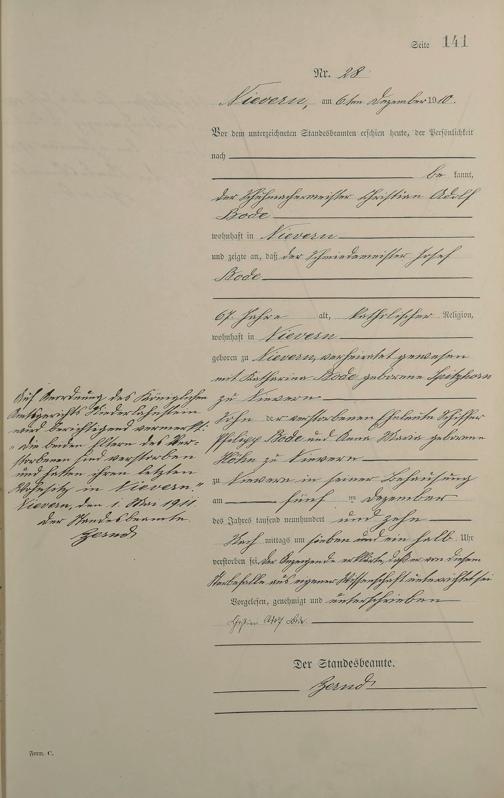 Seite 141
Nr. 28
Nievern, am 6ten Dezember 1910.
Vor dem unterzeichneten Standesbeamten erschien heute, der Persönlichkeit
nach
be kannt,
der Schuhmachermeister Christian Adolf
Bode
wohnhaft in Nievern
und zeigte an, daß der Schmiedemeister Josef
Bode
67 Jahre alt, katholischer Religion,
wohnhaft in Nievern
geboren zu Nievern, verheiratet gewesen
mit Katharina Bode geborene
zu Nievern
Sohn der verstorbenen Eheleute Schiffer
Philipp Bode und Anna Maria geborene
Höhn zu Nievern
zu Nievern in seiner Behausung
am fünf ten Dezember
des Jahres tausend neunhundert und zehn
Nach mittags um sieben und ein halb Uhr
verstorben sei. Der Anzeigende erklärte, daß er von diesem
Sterbefalle aus eigener Wissenschaft unterrichtet sei
Vorgelesen, genehmigt und unterschrieben
Adolf Bode
Der Standesbeamte.
Zerndt
Auf Anordnung des Königlichen
Amtsgerichts Niederlahnstein
wird berichtigend vermerkt:
"die beiden Eltern des Ver-
storbenen sind verstorben
und hatten ihren letzten
Wohnsitz in Nievern."
Nievern, den 1. Mai 1911
Der Standesbeamte
Zerndt
Form. C.